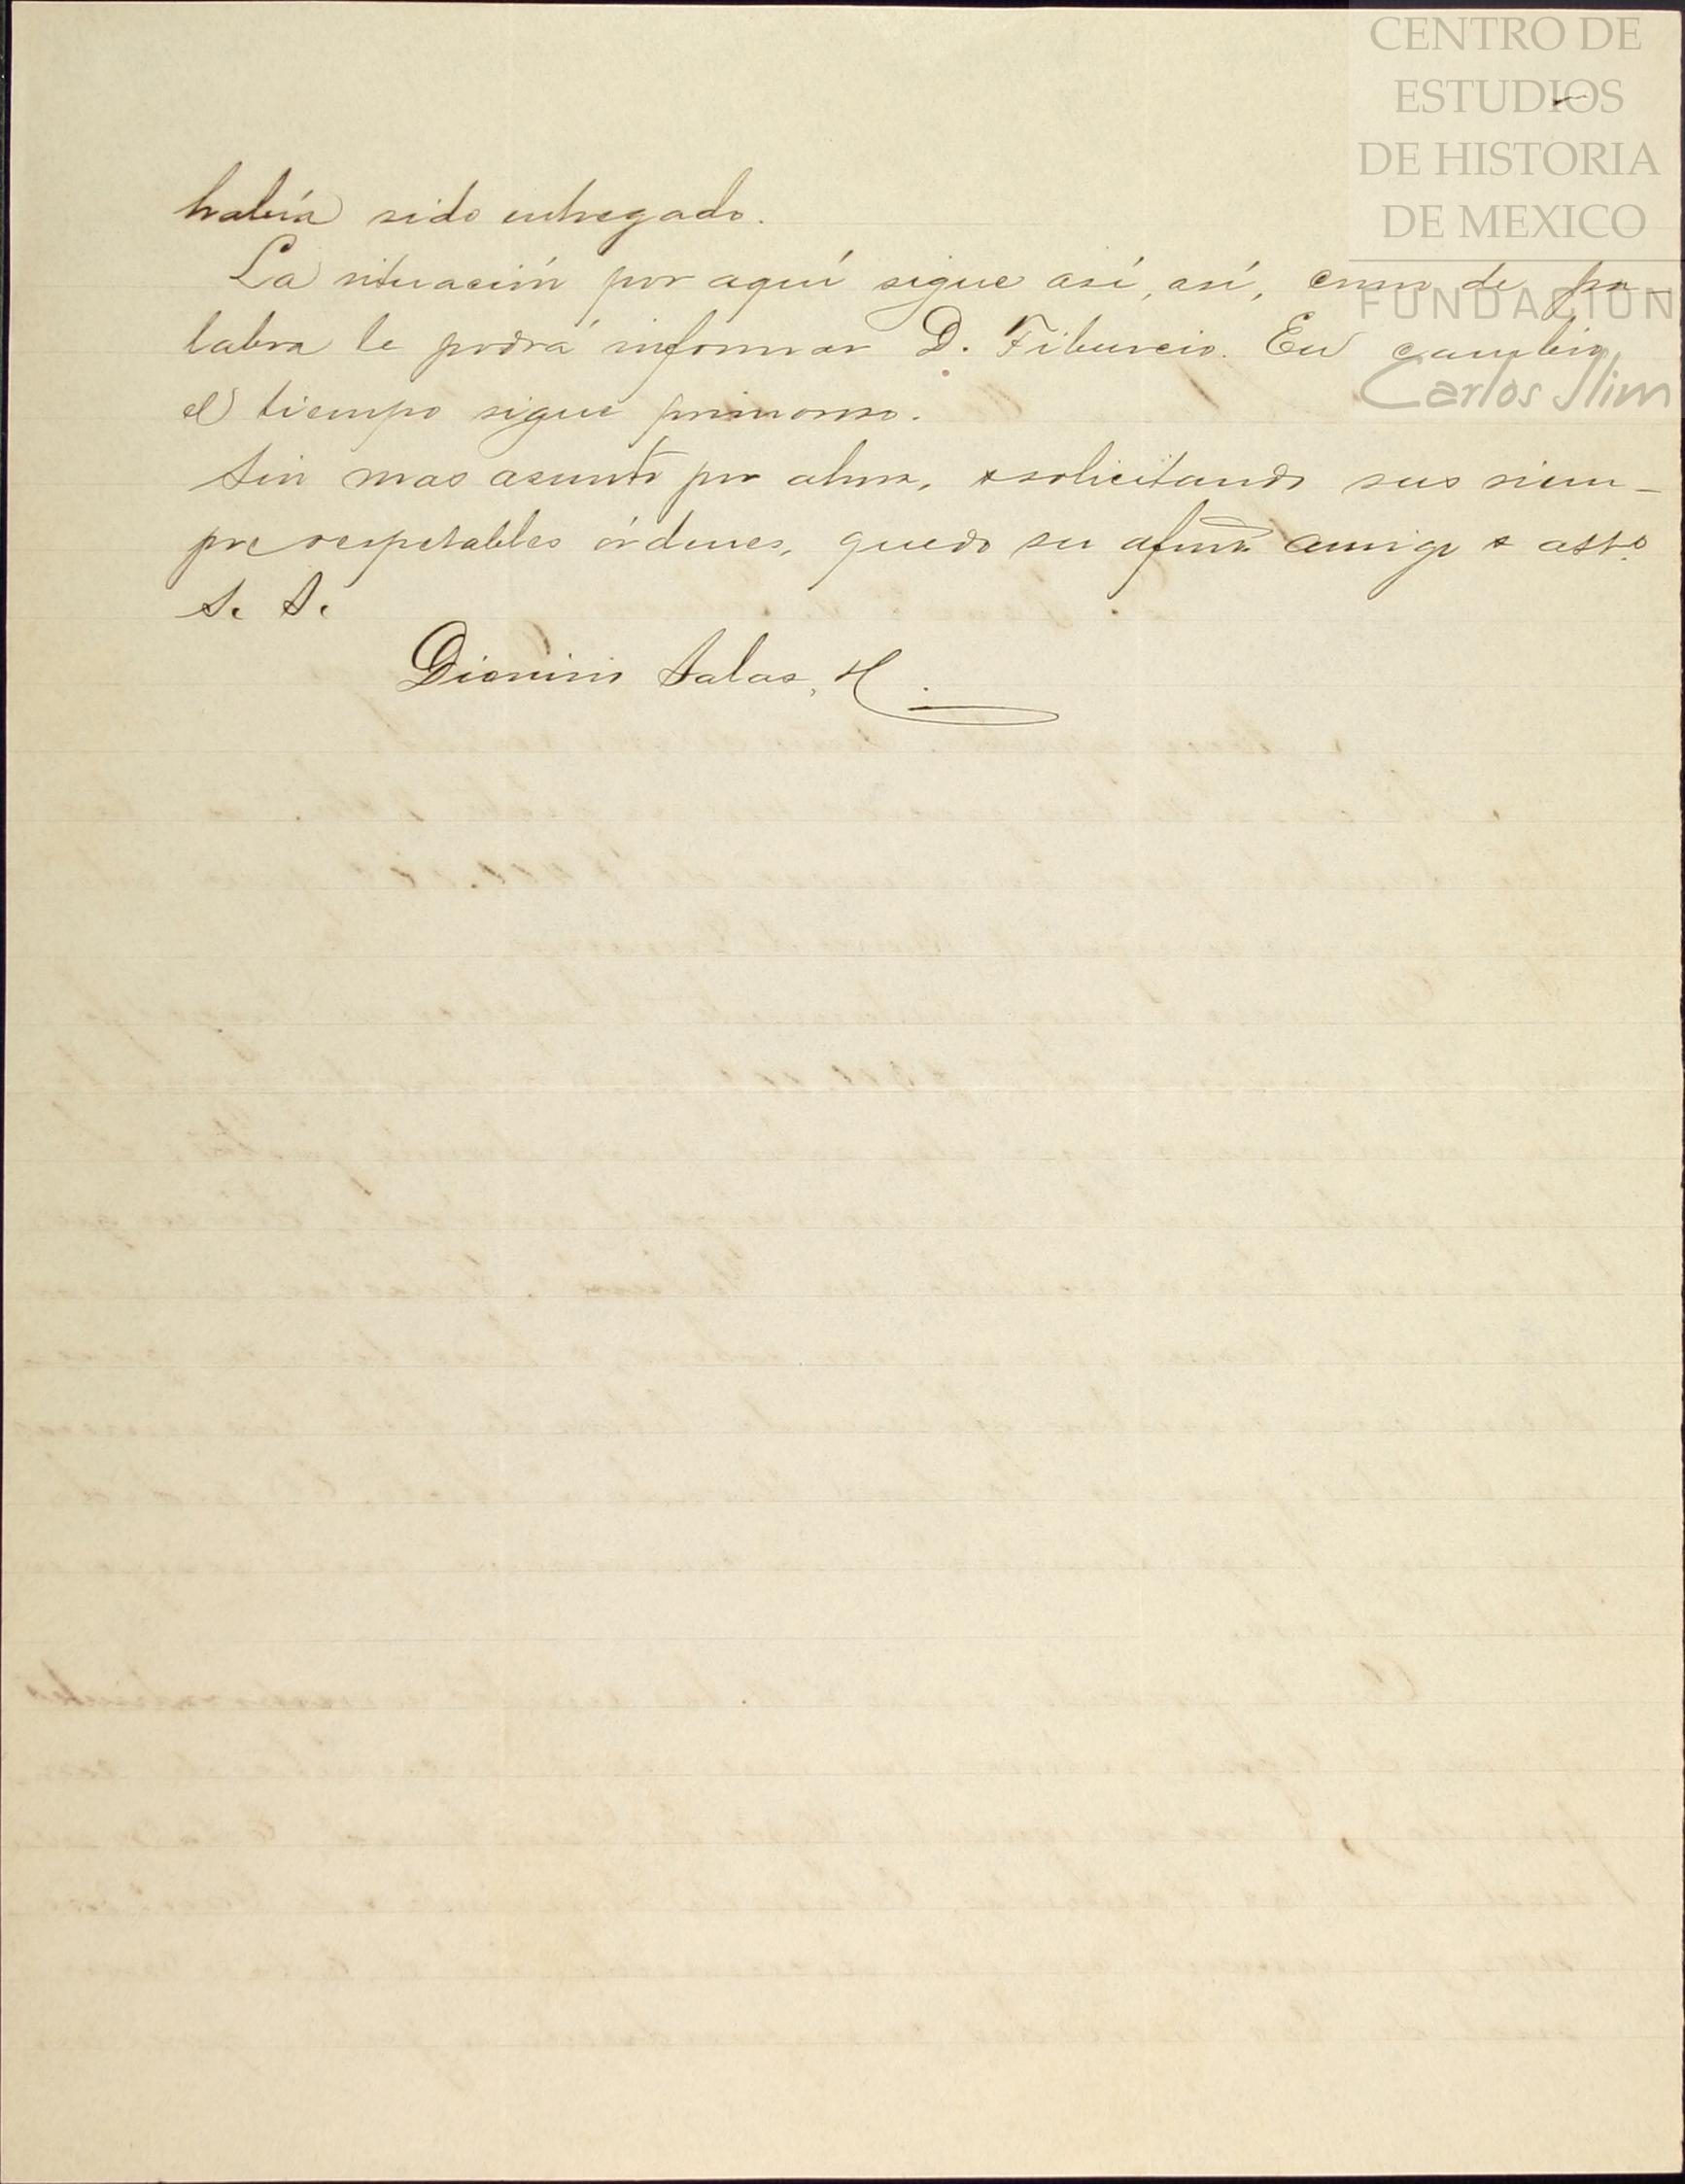 CENTRO DE
ESTUDIOS
DE HISTORIA
DE MEXICO
FUNDACIÓN
Carlos Slim
había sido entregado.
La situación por aquí sigue así, así, como de pa-
labra le podrá informar D. Tiburcio. En cambio,
el tiempo sigue primoroso.
Sin mas asunto por ahora, y solicitando sus siem-
pre respetables órdenes, quedo su afmo. amigo y atto.
S. S.
Dionisio Salas, H.